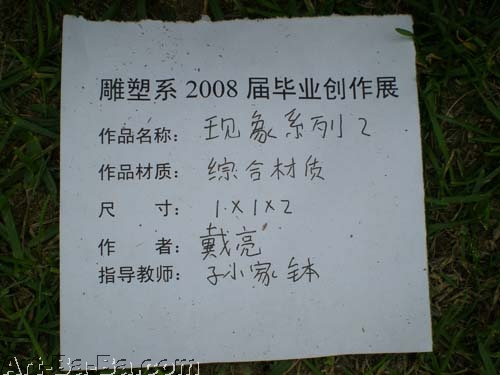 雕塑系 2008 届毕业创作展
作品名称: 现象系列 2
作品材质: 综合材质
尺 寸: 1×1×2
作 者: 戴亮
指导教师: 孙家钵
Art-Ba-Ba.com